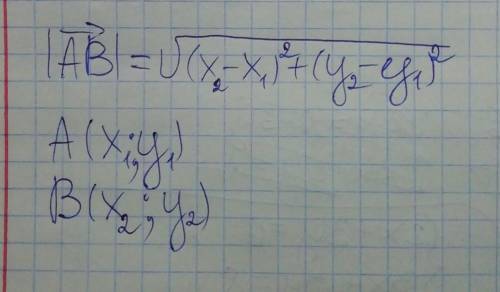 |AB⃗| = √(x₂-x₁)²+(y₂-y₁)²
A(x₁;y₁)
B(x₂;y₂)